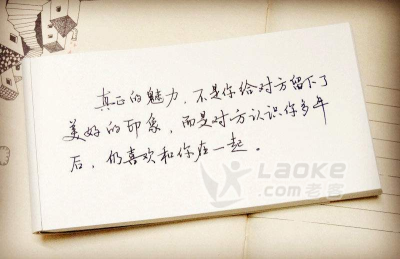 真正的魅力，不是你给对方留下了
美好的印象，而是对方认识你多年
后，仍喜欢和你在一起。
LAOKE
.com老客